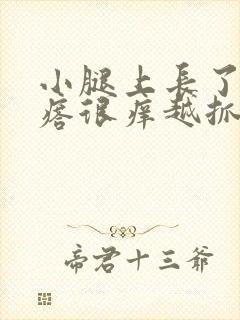 小腿上長了
痞很痒越抓
帝君十三爺